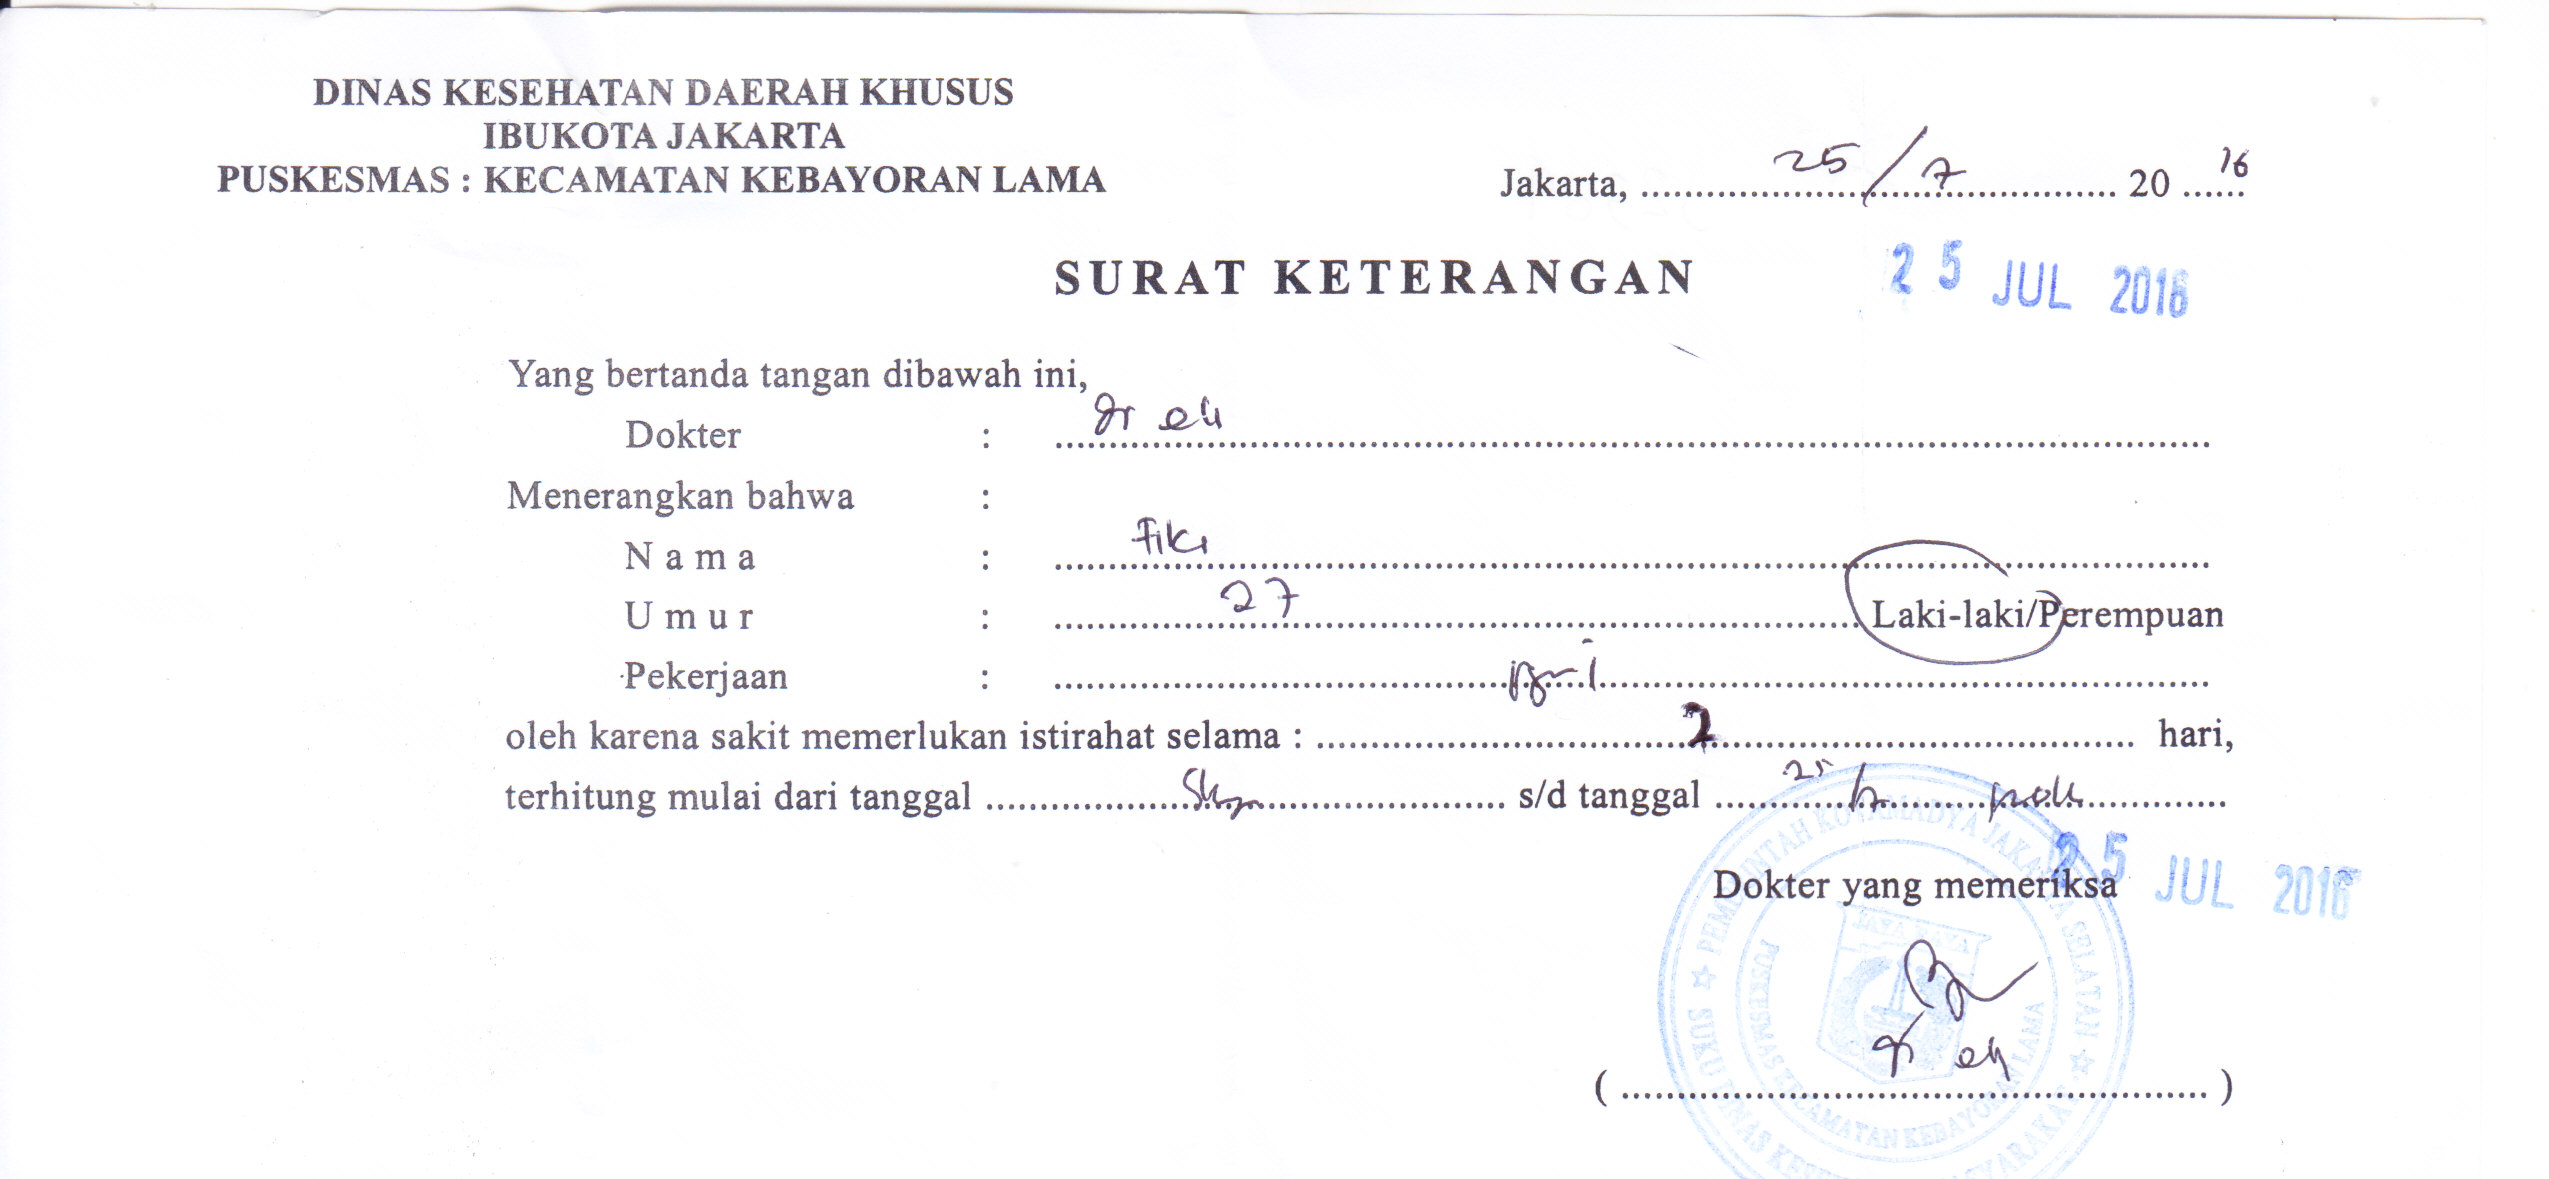 DINAS KESEHATAN DAERAH KHUSUS
IBUKOTA JAKARTA
PUSKESMAS : KECAMATAN KEBAYORAN LAMA
Jakarta, 25/7 20 16
SURAT KETERANGAN
25 JUL 2016
Yang bertanda tangan dibawah ini,
Dokter : dr
Menerangkan bahwa :
Nama : Fiki
Umur : 27 Laki-laki/Perempuan
Pekerjaan :
oleh karena sakit memerlukan istirahat selama : 2 hari,
terhitung mulai dari tanggal s/d tanggal 25/7
25 JUL 2016
Dokter yang memeriksa
PEMERINTAH KOTAMADYA JAKARTA SELATAN
JAYA RAYA
PUSKESMAS KECAMATAN KEBAYORAN LAMA
dr
( )